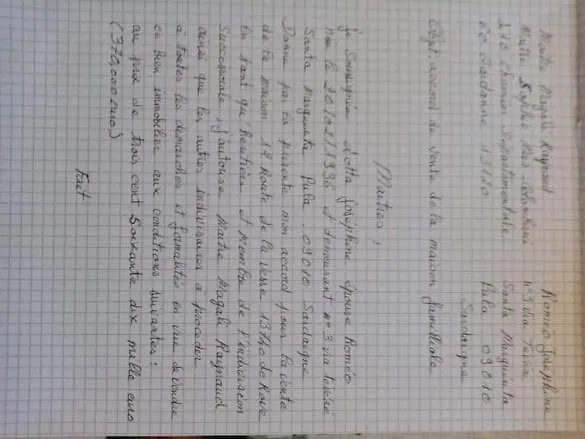 Maitre Magali Raynaud
Maitre Sophie
210 Chemin Departementale
60 Gardanne 13120
Romeo Josephine
n°3 Via
Santa Margherita
Pula 09010
Sardaigne
Objet: accord de vente de la maison familiale
Maitres,
Je Soussignée Josephine épouse Roméo
née le 20/02/1936 et demeurant n°3 via
Santa Margherita Pula. 09010 Sardaigne
Donne par la présente mon accord pour la vente
de la maison 12 Route de la
en tant que heritière et membre de l'indivision
Successorale, j'autorise Maitre Magali Raynaud
ainsi que les autres indivisaires a proceder
à toutes les demarches et formalités en vue de vendre
ce bien immobilier aux conditions suivantes:
au prix de trois cent Soixante dix mille euro
(370,000 euro)
Fait